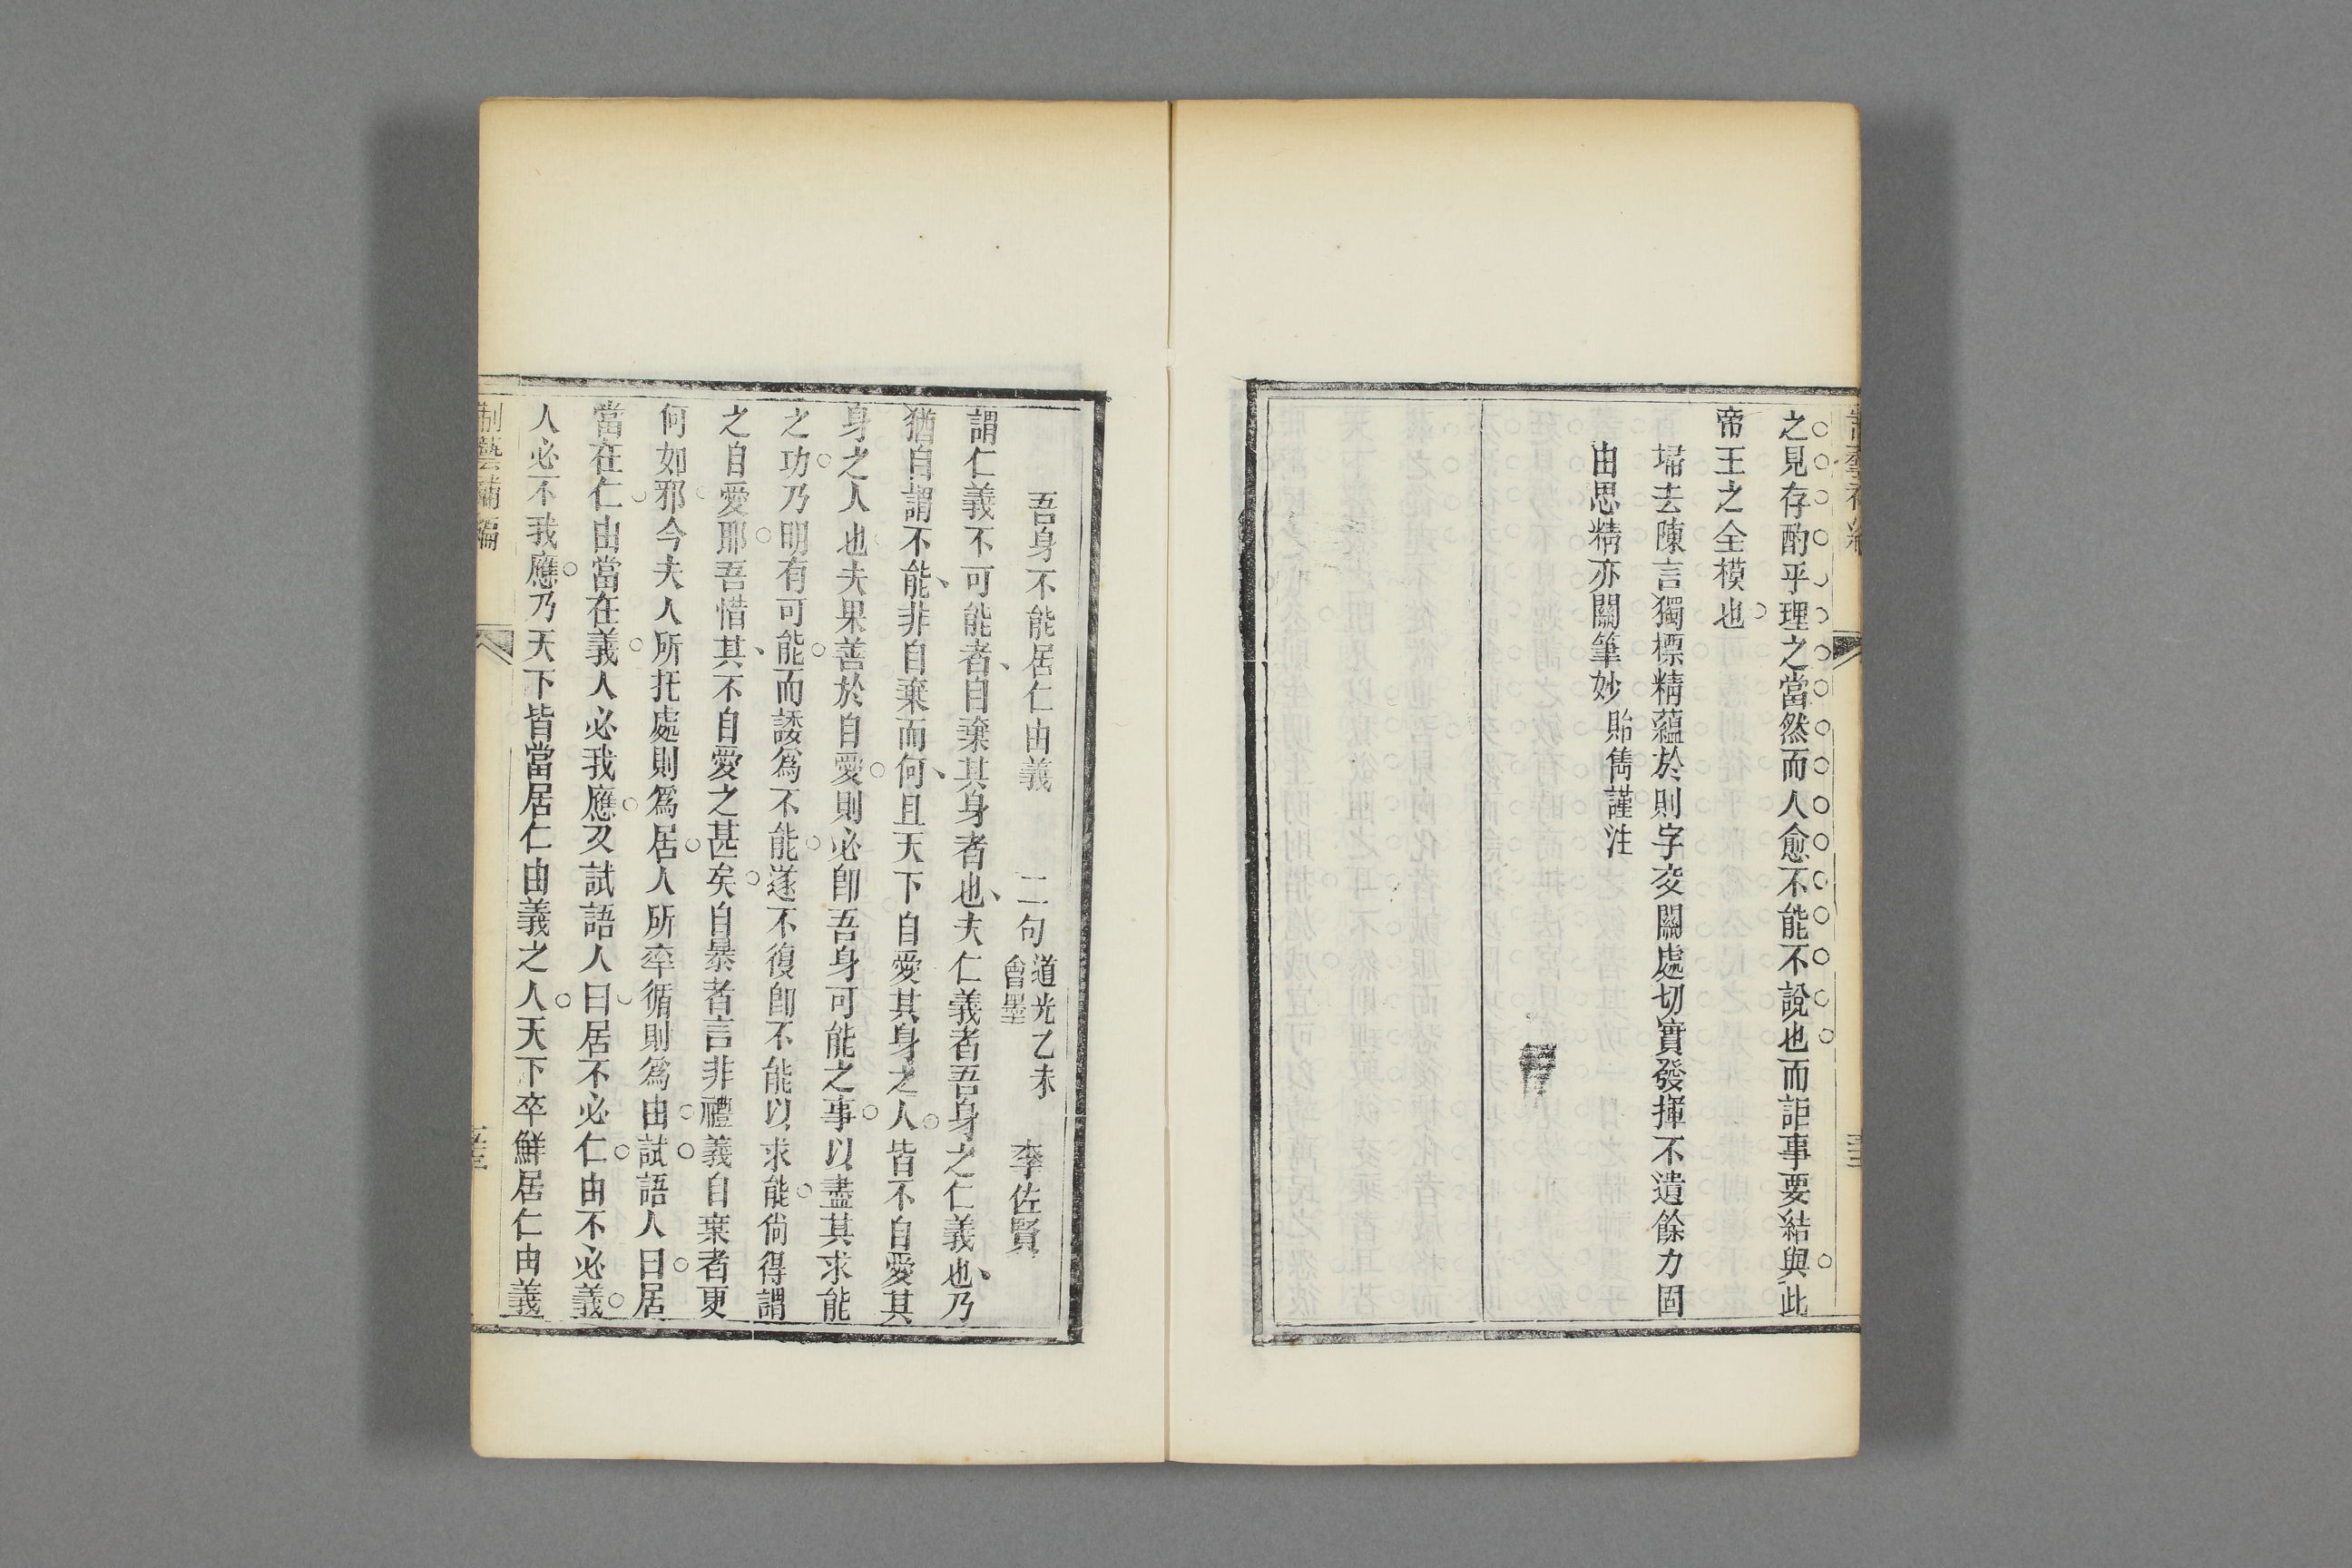 之見存酌乎理之當然而人愈不能不說也而詎事要結與此
帝王之全模也
埽去陳言獨標精蘊於則字交關處切實發揮不遺餘力固
由思精亦關筆妙 貽雋謹注
吾身不能居仁由義 二句 道光乙未會墨 李佐賢
謂仁義不可能者自棄其身者也夫仁義者吾身之仁義也乃
猶自謂不能非自棄而何且天下自愛其身之人皆不自愛其
身之人也夫果善於自愛則必卽吾身可能之事以盡其求能
之功乃明有可能而諉為不能遂不復卽不能以求能尙得謂
之自愛耶吾惜其不自愛之甚矣自暴者言非禮義自棄者更
何如邪今夫人所托處則爲居人所率循則爲由試語人曰居
當在仁由當在義人必我應又試語人曰居不必仁由不必義
人必不我應乃天下皆當居仁由義之人天下卒鮮居仁由義
制藝補編